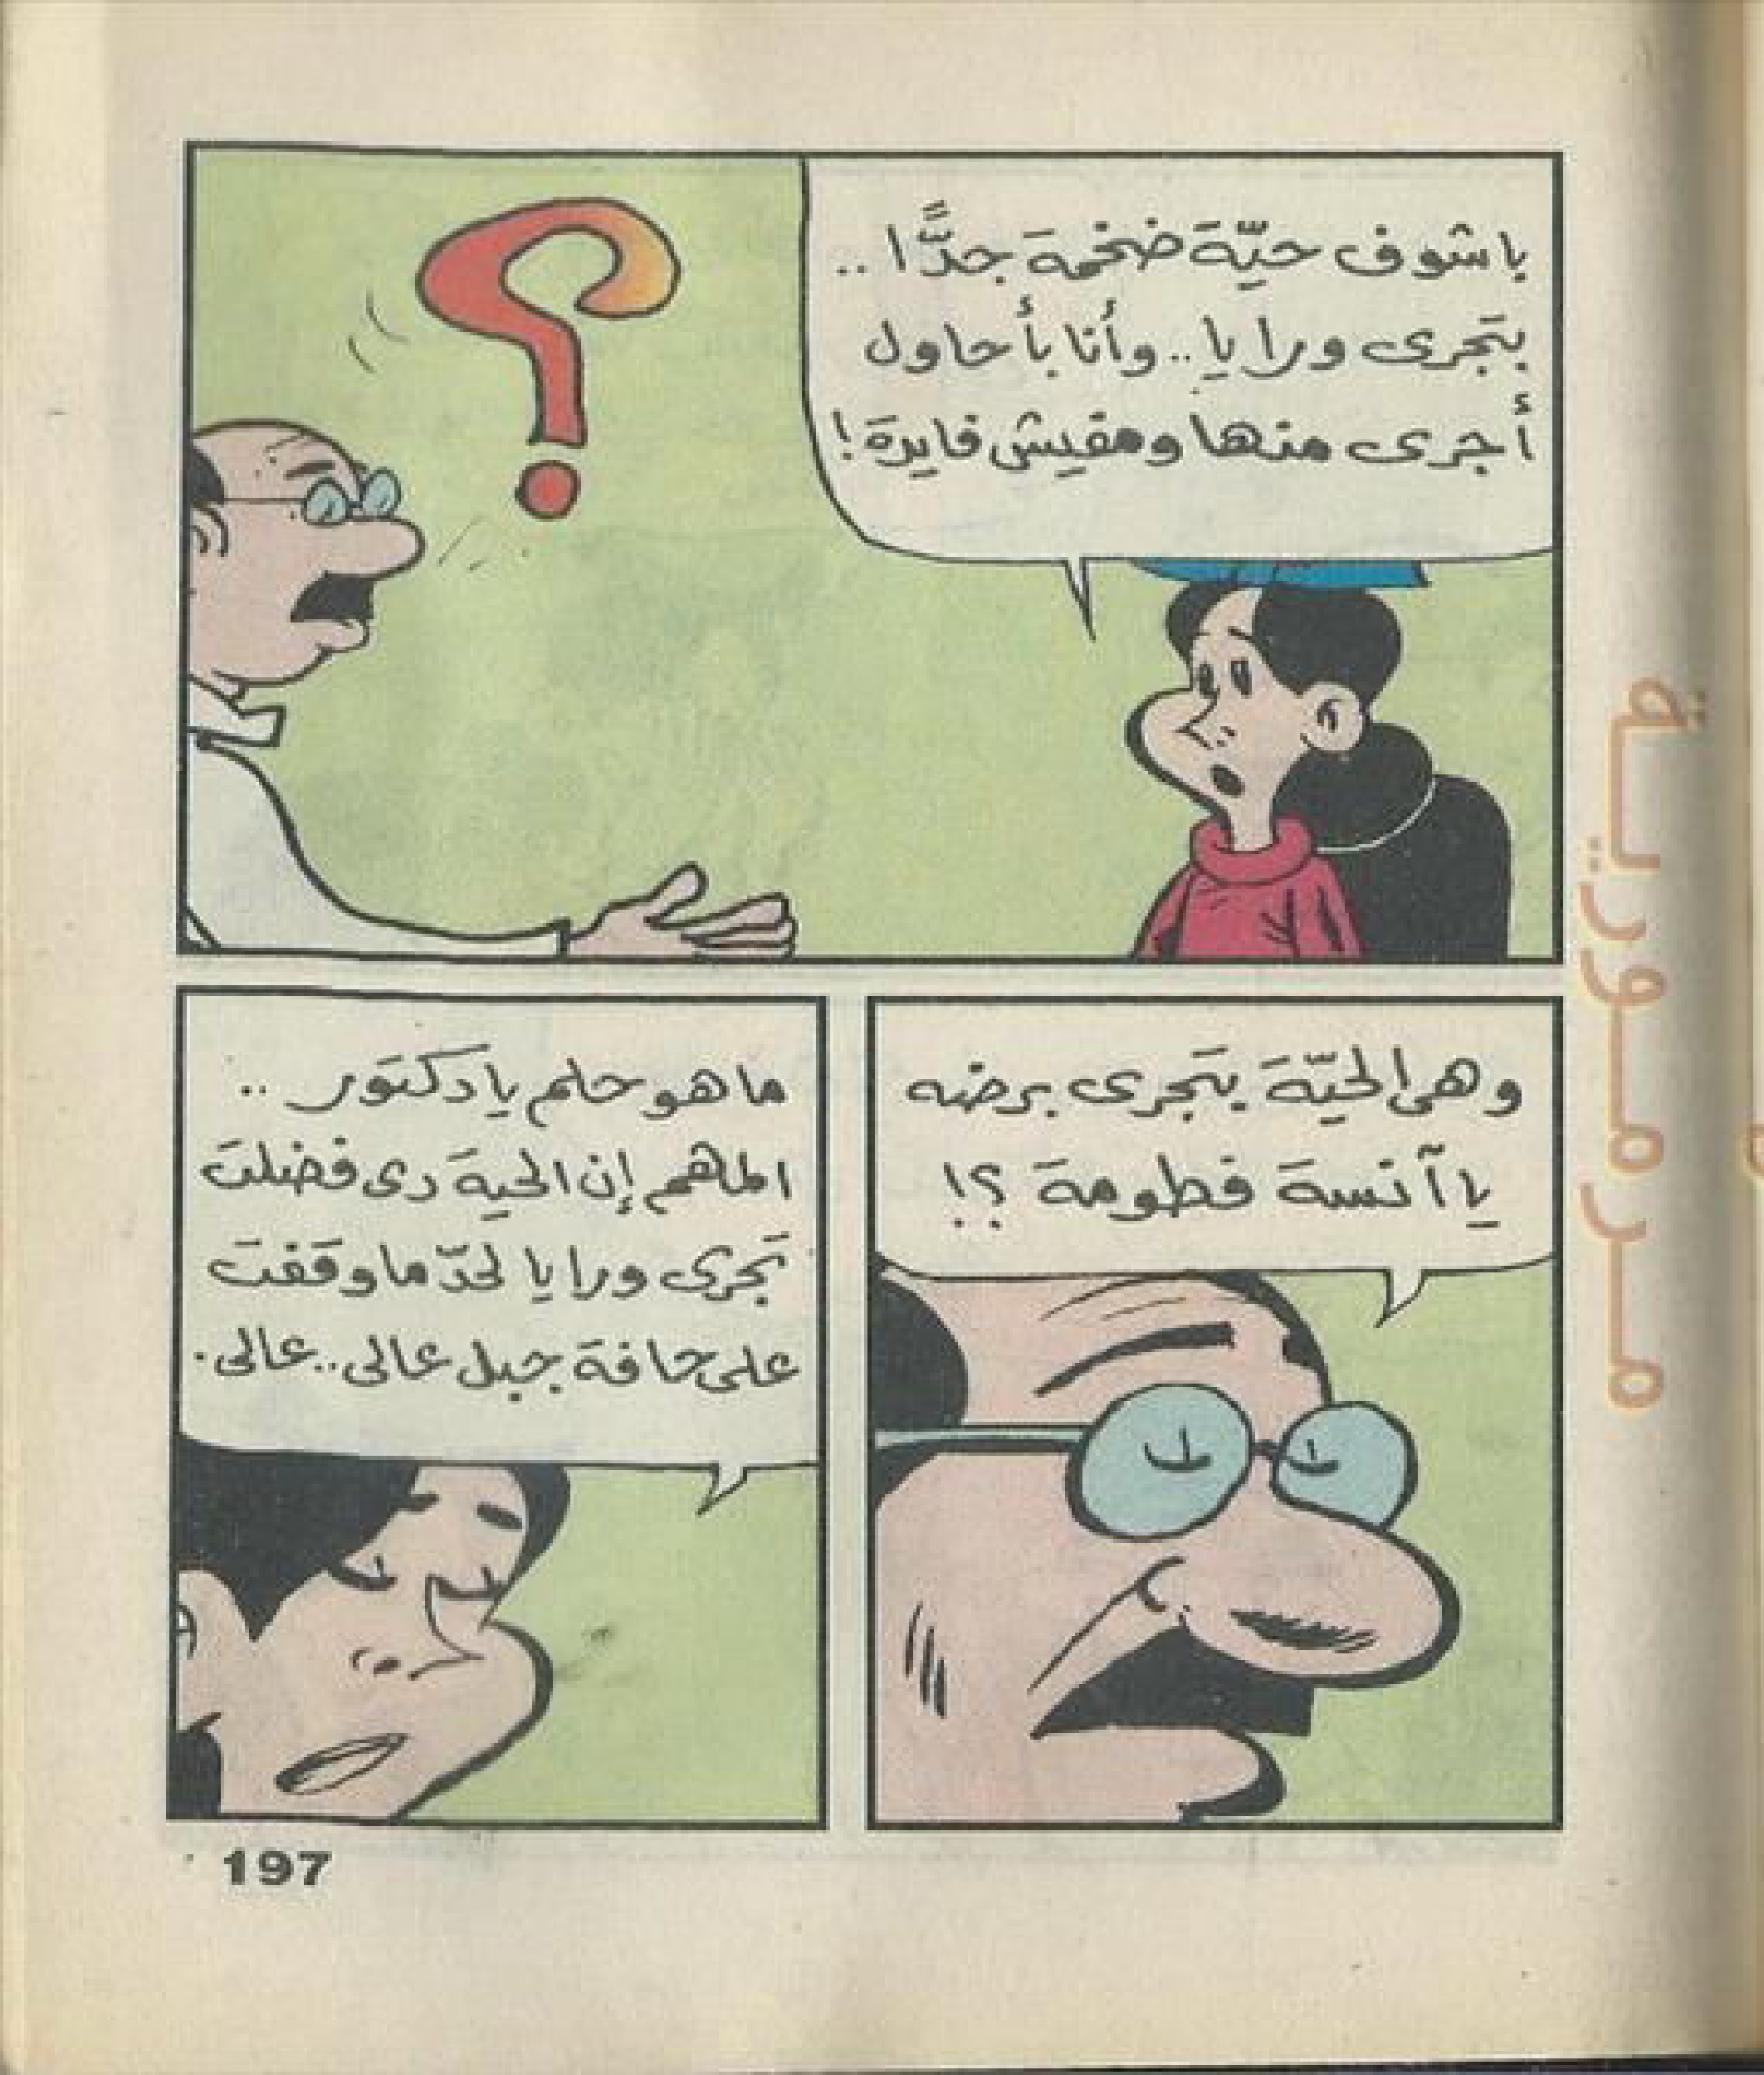 باشوف حيّة ضخمة جدًّا ..
بتجرى ورايا .. وأنا بأحاول
أجرى منها ومفيش فايدة!
؟
وهى الحيّة بتجرى برضه
يا آنسة فطومة ؟!
ما هو حلم يا دكتور ..
المهم إن الحية دى فضلت
تجرى ورايا لحدّ ما وقفت
على حافة جبل عالى .. عالى .
197
مرمورية